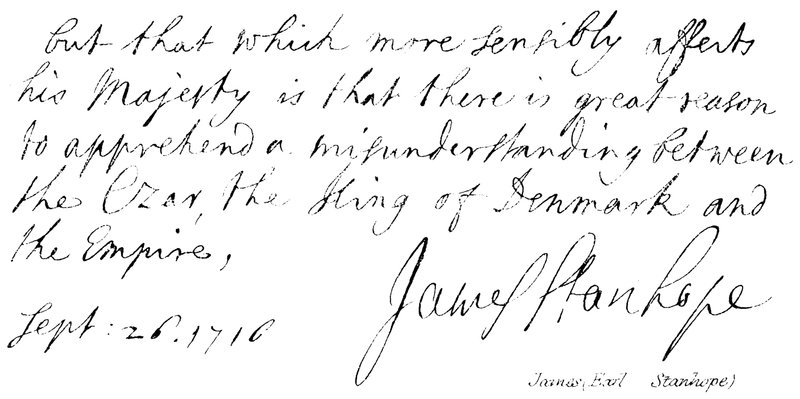 but that which more sensibly affects
his Majesty is that there is great reason
to apprehend a misunderstanding between
the Czar, the King of Denmark and
the Empire,
James Stanhope
Sept: 26. 1716
James (Earl Stanhope)